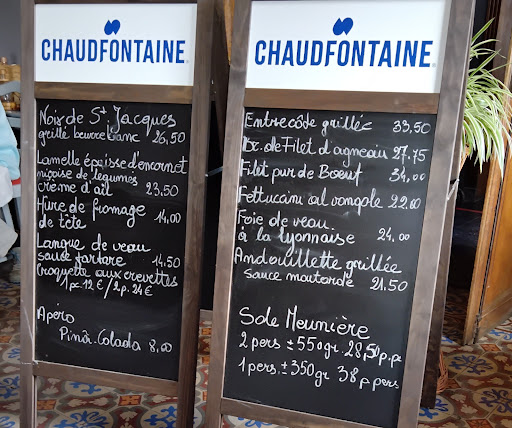 CHAUDFONTAINE
Noix de St Jacques
grillé beurre blanc 26,50
Lamelle épaisse d'encornet
niçoise de legumes
crème d'ail 23.50
Hûre de fromage
de tête 14,00
Langue de veau
sauce tartare 14.50
Croquette aux crevettes
1 pc. 12 € / 2 p. 24 €
Apéro
Pinâ. Colada 8,00
CHAUDFONTAINE
Entrecôte grillée 33,50
de Filet d'agneau 27.75
Filet pur de Boeuf 34,00
Fettuccini al vongole 22.00
Foie de veau
à la lyonnaise 24,00
Andouillette grillée
sauce moutarde 21,50
Sole Meunière
2 pers ± 550 gr. 28,50 p.p.
1 pers. ± 350 gr 38 p pers